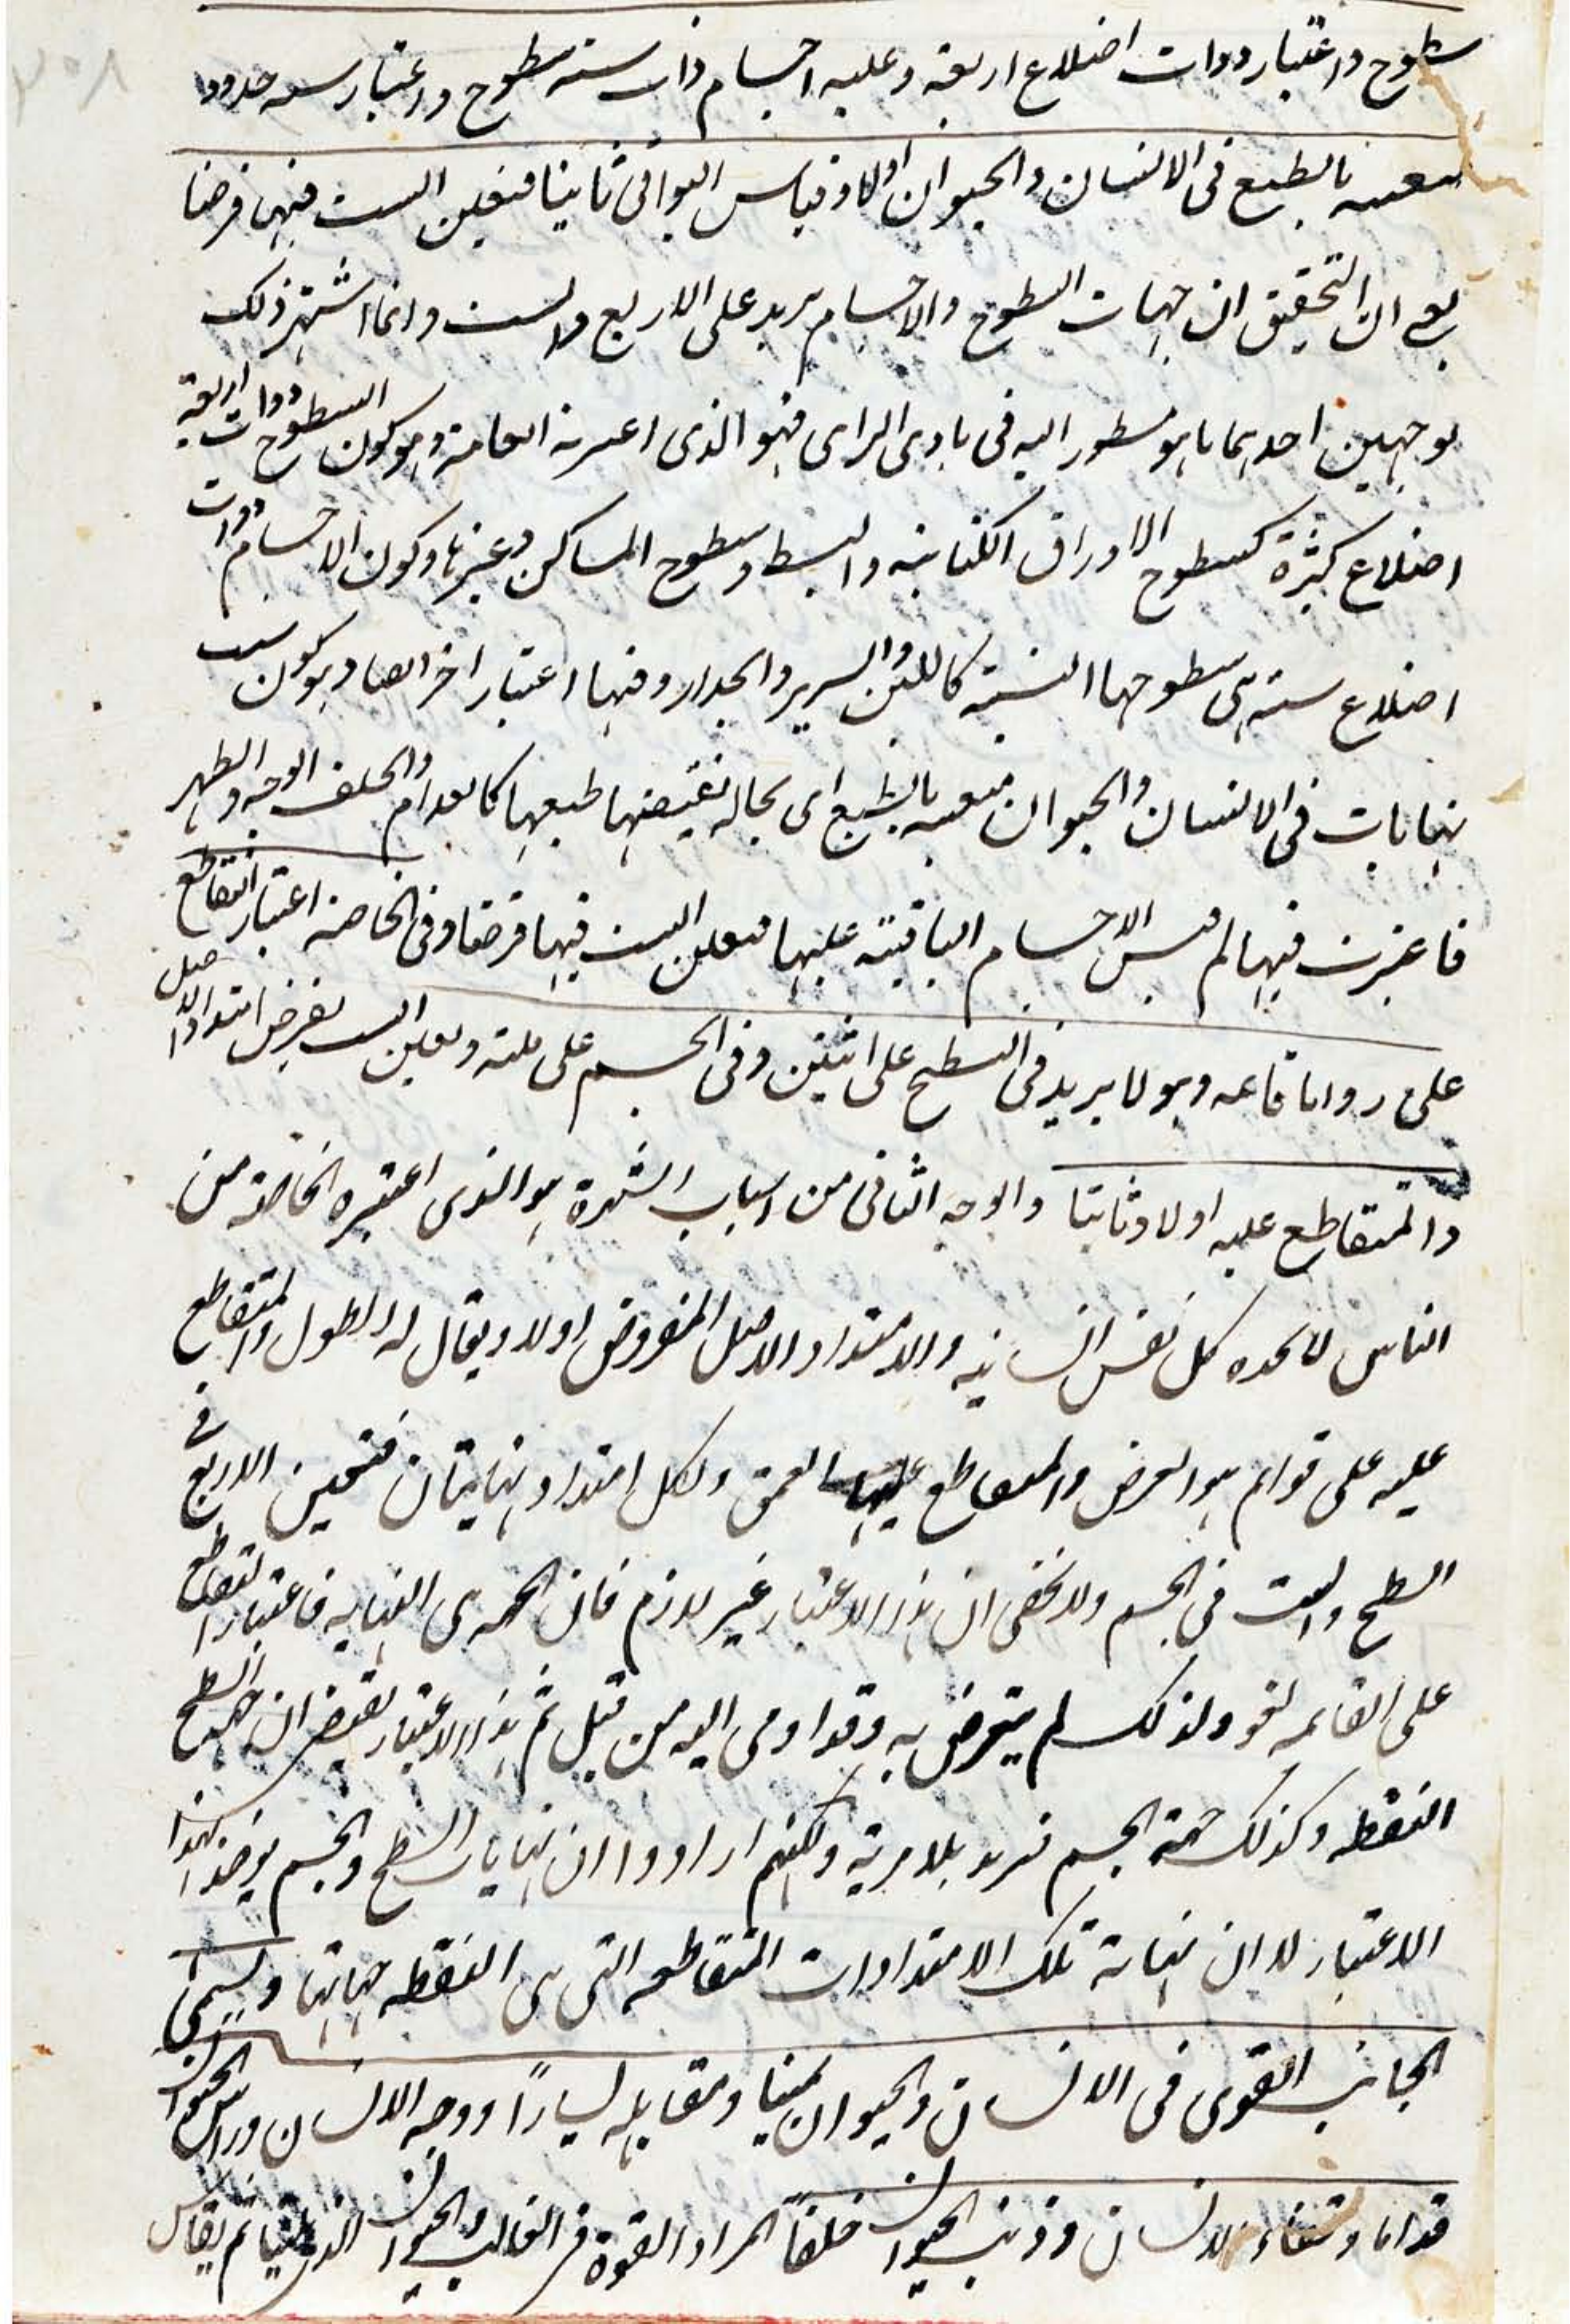 ۲۰۸
سطوح واعتبار ذوات اضلاع اربعة وعليه اجسام ذات ستة سطوح واعتبار ستة حدود
بالطبع فى الانسان والحيوان اولا وقياس البواقى ثانيا فتعين الست فيها فرضا
يعى ان التحقيق ان جهات السطوح والاجسام يزيد على الاربع والست وانما اشتهر ذلك
بوجهين احدهما ما هو منظور اليه فى بادى الراى فهو الذى اعتبرته العامة وهو كون السطوح ذوات اربعة
اضلاع كثيرة كسطوح الاوراق الكتابية والبسط وسطوح المساكن وغيرها وكون الاجسام ذوات
اضلاع ستة هى سطوحها الستة كاللبن والسرير والجدار وفيها اعتبار اخر ايضا وهو كون ست
نهايات فى الانسان والحيوان متعينة بالطبع اى بحالة تقتضيها طبعها كالقدام والخلف الوجه والظهر
فاعتبرت فيها ثم قيس الاجسام الباقية عليها فتعين الست فيها فرضا وفى الخاصة اعتبار التقاطع
على زوايا قائمة وهو لا يزيد فى السطح على اثنين وفى الجسم على ثلثة وتعين الست بفرض امتداد الاصل
والمتقاطع عليه اولا وثانيا والوجه الثانى من اسباب الشهرة هو الذى اعتبره الخاصة من
الناس لا يحده كل نفس انسانية والامتداد الاصل المفروض اولا ويقال له الطول والمتقاطع
عليه على قوائم هو العرض والمتقاطع عليهما العمق ولكل امتداد نهايتان فتحصل الاربع فى
السطح والست فى الجسم ولا يخفى ان هذا الاعتبار غير لازم فان الجهة هى النهاية فاعتبار التقاطع
على القائمة لغو ولذلك لم يتعرض به وقد اومى اليه من قبل ثم هذا الاعتبار يقتضى ان جهة السطح
النقطه وكذلك جهة الجسم تزيد بلا مرية ولكنهم ارادوا ان نهايات السطح والجسم يؤخذ بهذا
الاعتبار لا ان نهاية تلك الامتدادات المتقاطعة التى هى النقطه جهاتها ويسمى
الجانب القوى فى الانسان والحيوان يمينا ومقابله يسارًا ووجه الانسان وراس الحيوان
قداما وقفاء الانسان وذنب الحيوان خلفاً المراد القوة فى الغالب والحيوان الذى ثم يقاس